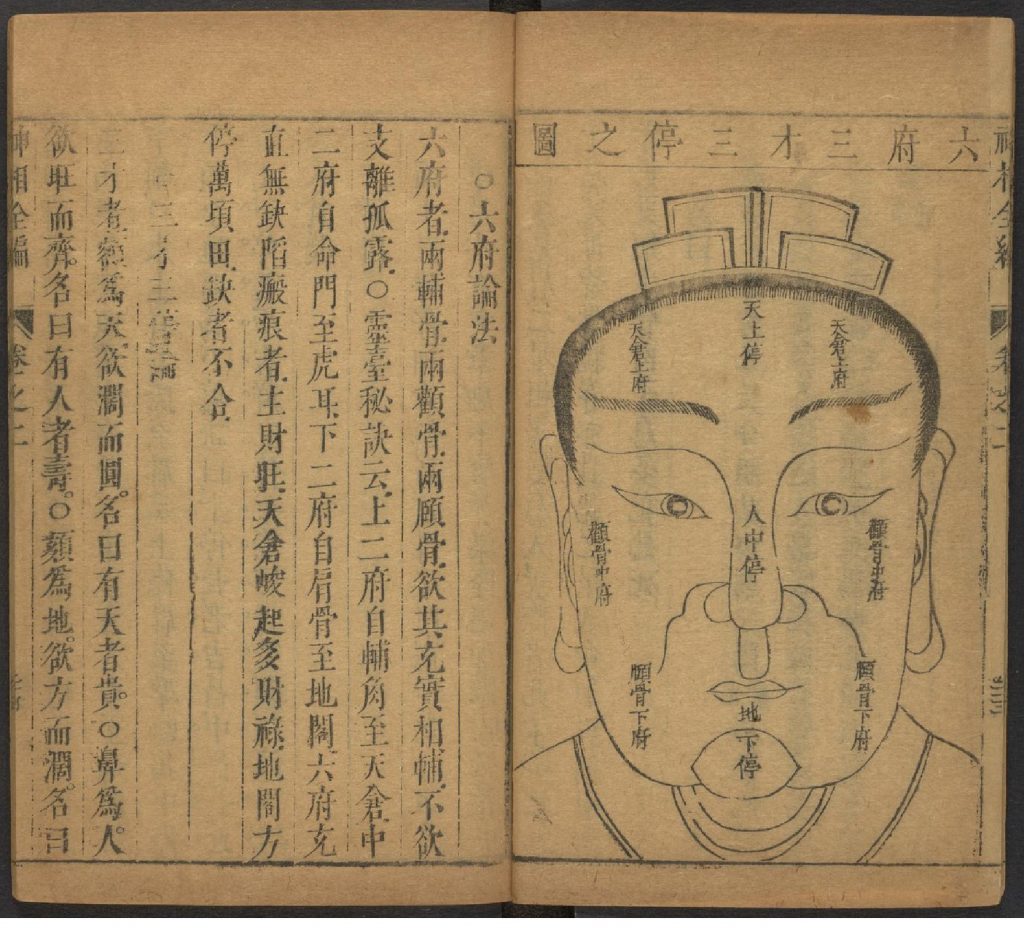 六府三才三停之圖
天上停
天倉上府
天倉上府
人中停
顴骨中府
顴骨中府
頤骨下府
頤骨下府
地下停
神相全編 卷之二
○六府論法
六府者.兩輔骨.兩顴骨.兩頤骨.欲其充實相輔.不欲
支離孤露.○靈臺秘訣云.上二府自輔角至天倉.中
二府自命門至虎耳.下二府自肩骨至地閣.六府充
直無缺陷瘢痕者.主財旺.天倉峻起多財祿.地閣方
停萬頃田.缺者不合.
三才三停論
三才者.額爲天.欲濶而圓.名曰有天者貴.○鼻爲人.
欲旺而齊.名曰有人者壽.○頦爲地.欲方而濶.名曰
神相全編 卷之二